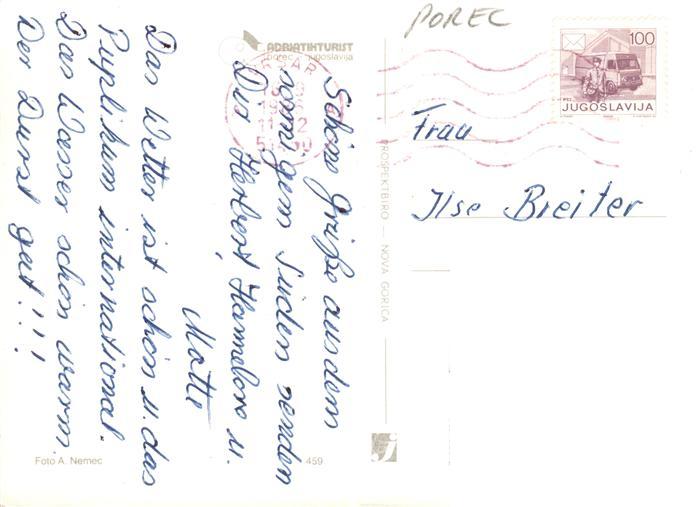 POREC
ADRIATIKTURIST
poreč jugoslavija
100
PTT
JUGOSLAVIJA
Schöne Grüße aus dem
sonnigem Süden senden
Dir Herbert, Hannelore u.
Motte
Das Wetter ist schön u. das
Puplikum international.
Das Wasser schön warm.
Der Durst gut!!!
Frau
Ilse Breiter
PROSPEKTBIRO — NOVA GORICA
Foto A. Nemec
459